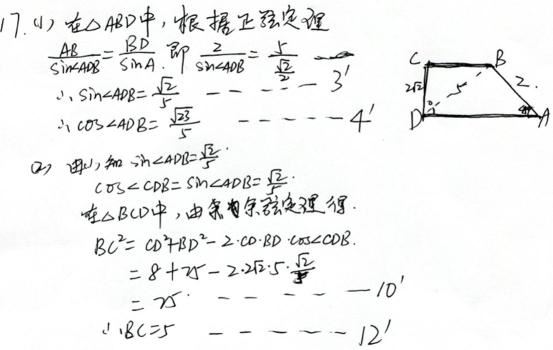 17. (1) 在△ABD中, 根据正弦定理
AB/sin∠ADB = BD/sinA. 即 2/sin∠ADB = 5/(√2/2)
∴ sin∠ADB = √2/5 ------ 3'
∴ cos∠ADB = √23/5 ------ 4'
(2) 由(1)知 sin∠ADB = √2/5.
cos∠CDB = sin∠ADB = √2/5.
在△BCD中, 由余弦定理得.
BC² = CD² + BD² - 2·CD·BD·cos∠CDB.
= 8 + 25 - 2·2√2·5·√2/5
= 25. ------ 10'
∴ BC = 5 ------ 12'
C B
2√2 5 2.
D A